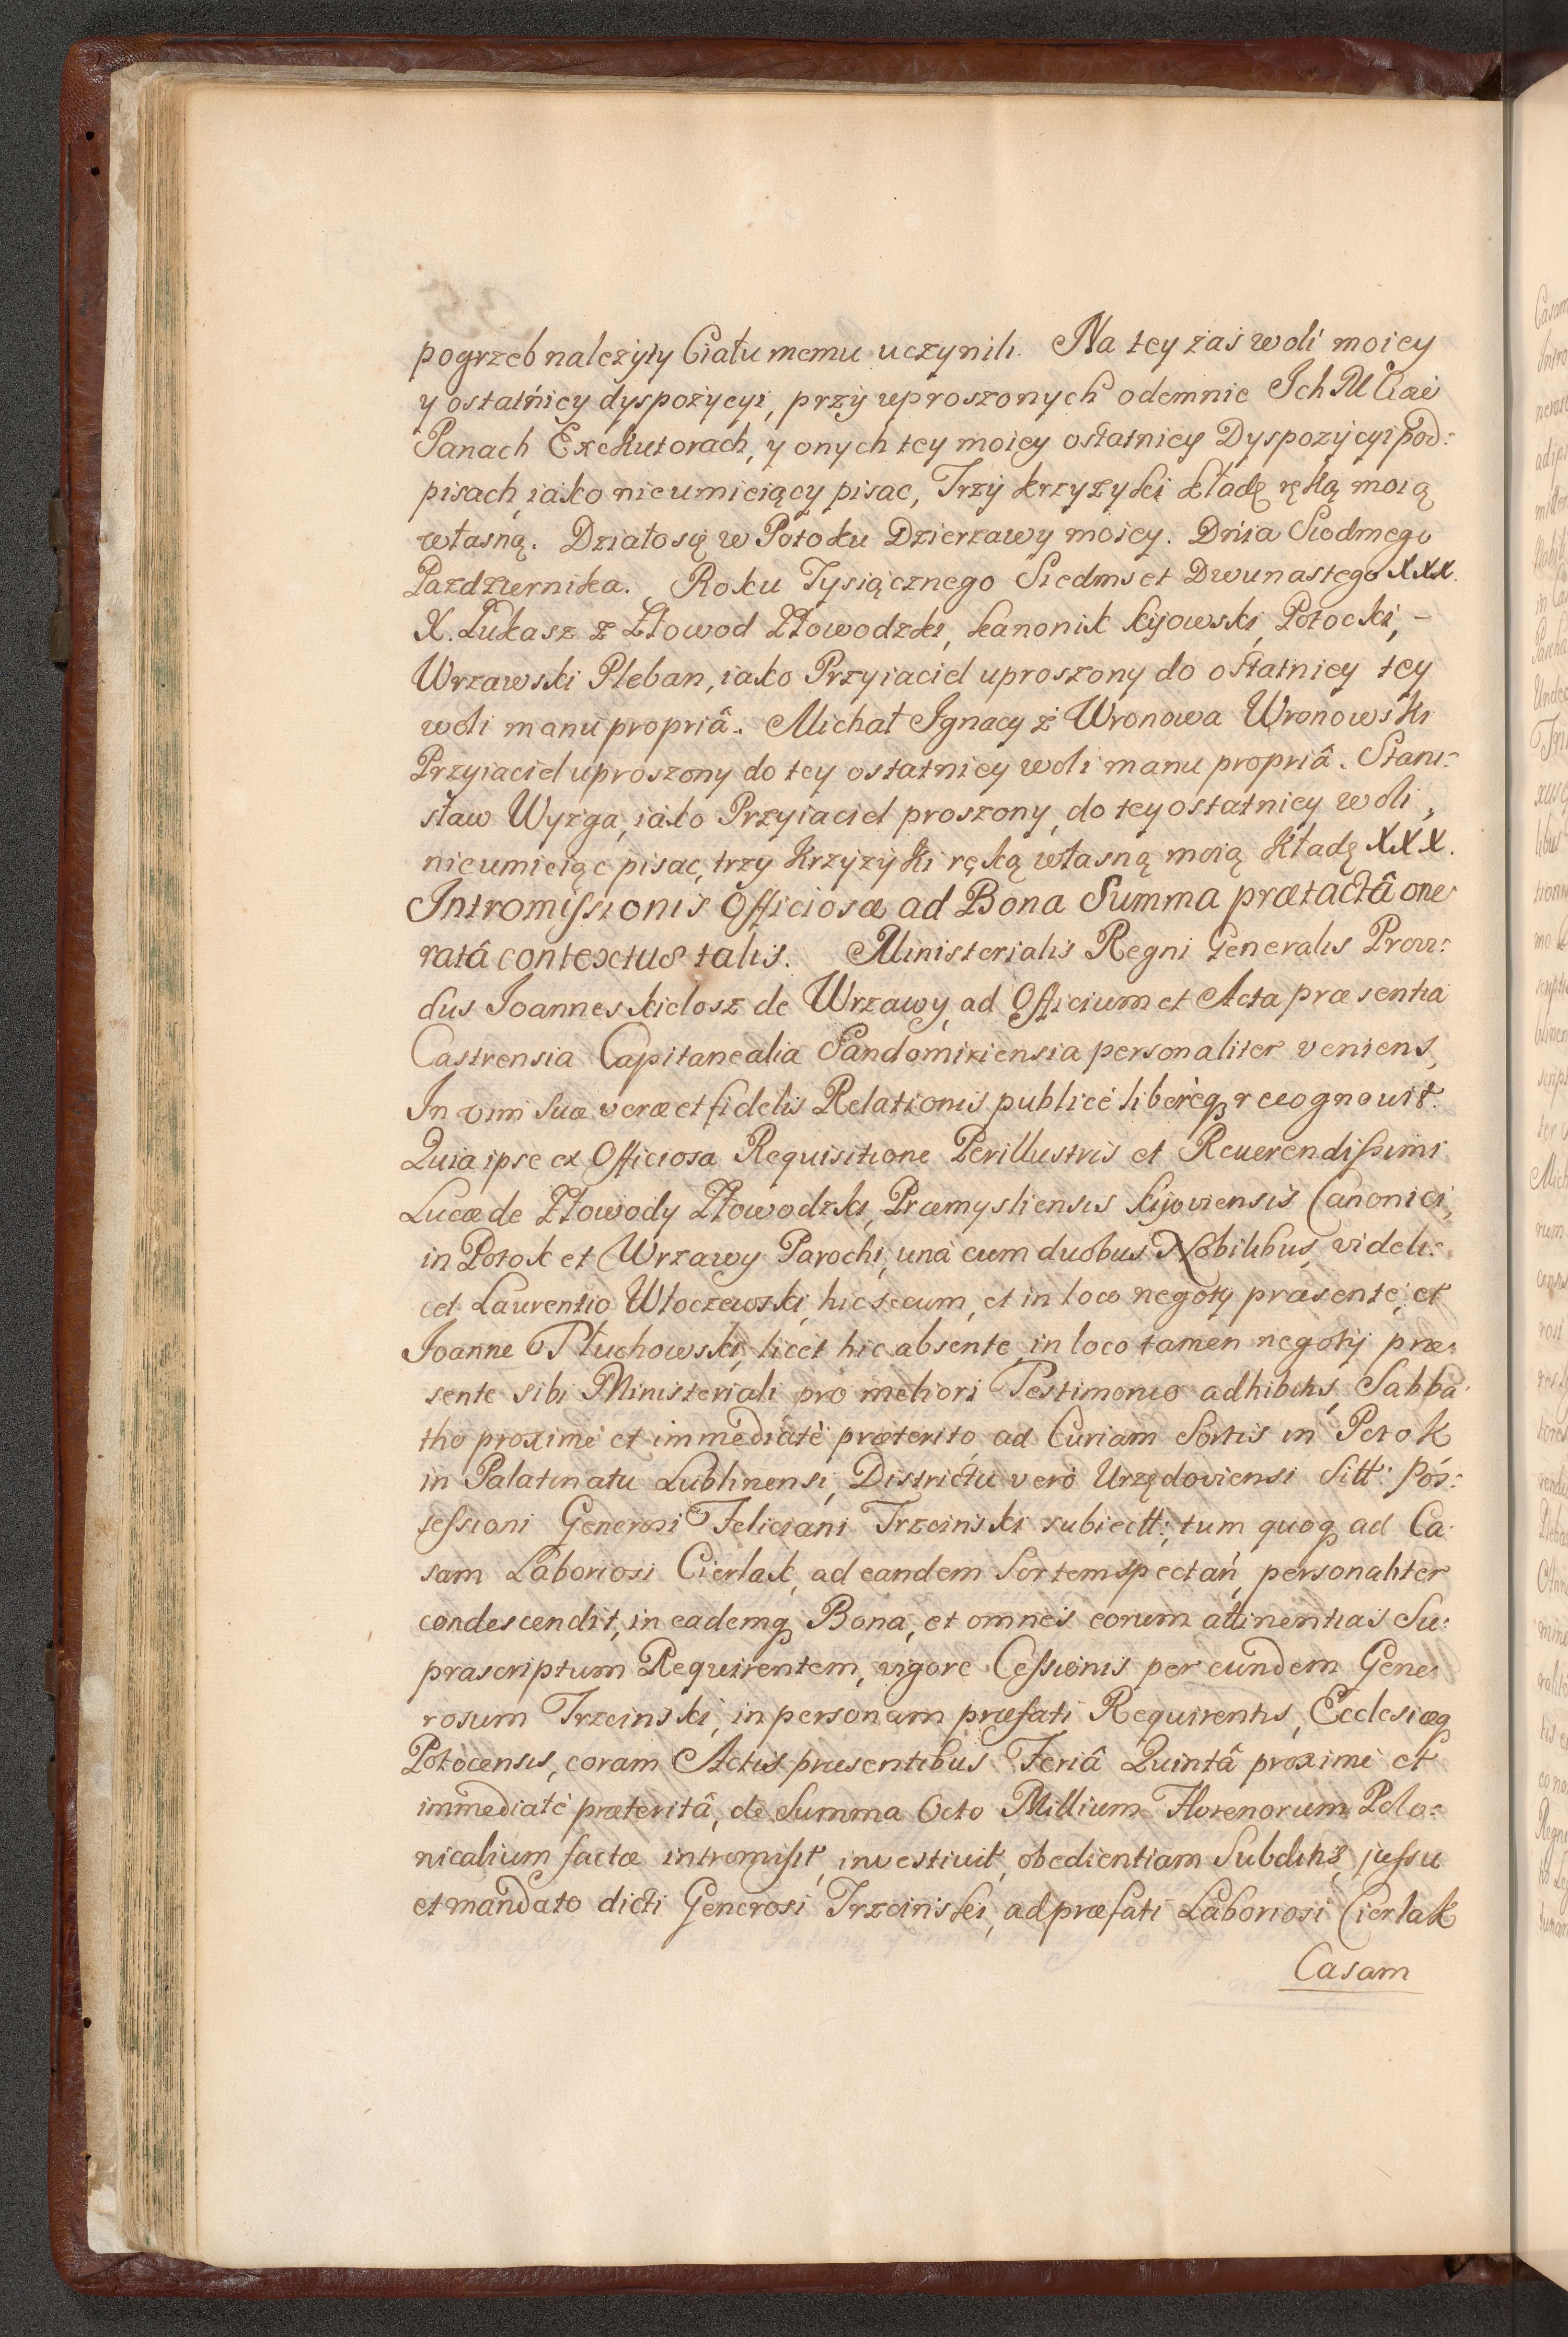 pogrzeb nalezyty Ciału memu uczynili. Na tey zas woli moiey
y ostatńiey dyspozycyi, przy uproszonych odemnie Ich M
Panach Exekutorach, y onych tey moiey ostatniey Dyspozycyi pod:
pisach, iako nieumieiący pisac, Trzy krzyzyki kładę ręką moią
własną. Działo się w Potoku Dzierzawy moiey. Dńia Siodmego
Pazdziernika. Roku Tysiącznego Siedmset Dwunastego XXX.
X. Łukasz z Złowod Złowodzki, kanonik kijowski, Potocki, –
Wrzawski Pleban, iako Przyiaciel uproszony do ostatniey tey
woli manu propriâ. Michał Ignacy z Wronowa Wronowski
Przyiaciel uproszony do tey ostatniey woli manu propriâ. Stani:
sław Wyzga, iako Przyiaciel proszony, do tey ostatniey woli,
nieumieiąc pisac, trzy krzyzyki ręką własną moią kładę XXX.
Intromissionis Officiosæ ad Bona Summa prætactâ one
ratâ contextus talis. Ministerialis Regni Generalis Provi:
dus Joannes kielosz de Wrzawy, ad Officium et Acta præsentia
Castrensia Capitanealia Sandomiriensia personaliter veniens,
In vim suæ veræ et fidelis Relationis publicè liberèq, recognouit.
Quia ipse ex Officiosa Requisitione Perillustris et Reuerendissimi
Lucæ de Złowody Złowodzki, Præmysliensis kijoviensis Canonici,
in Potok et Wrzawy Parochi, unà cum duobus Nobilibus, videli:
cet Laurentio Włoczewski, hic secum, et in loco negotij præsente, et
Joanne Płuchowski, licet hic absente, in loco tamen negotij præ:
sente sibi Ministeriali pro meliori Testimonio adhibitis, Sabba:
tho proximè et immediatè præterito, ad Curiam Sortis in Potok
in Palatinatu Lublinensi, Districtu verò Urzędoviensi Sitt: Pos:
sessioni Generosi Feliciani Trzcinski subiectt: tum quoq ad Ca:
sam Laboriosi Cierlak, ad eandem Sortem spectań, personaliter
condescendit, in eademq Bona, et omnes eorum attinentias Su:
prascriptum Requirentem, vigore Cessionis per eundem Gene:
rosum Trzcinski, in personam præfati Requirentis, Ecclesiæq
Potocensis, coram Actis præsentibus Feriâ Quintâ proximè et
immediatè præteritâ, de Summa Octo Millium Florenorum Polo:
nicalium factæ intromisit, investiuit, obedientiam Subditis, jussu
et mandato dicti Generosi Trzcinski, ad præfati Laboriosi Cierlak
Casam